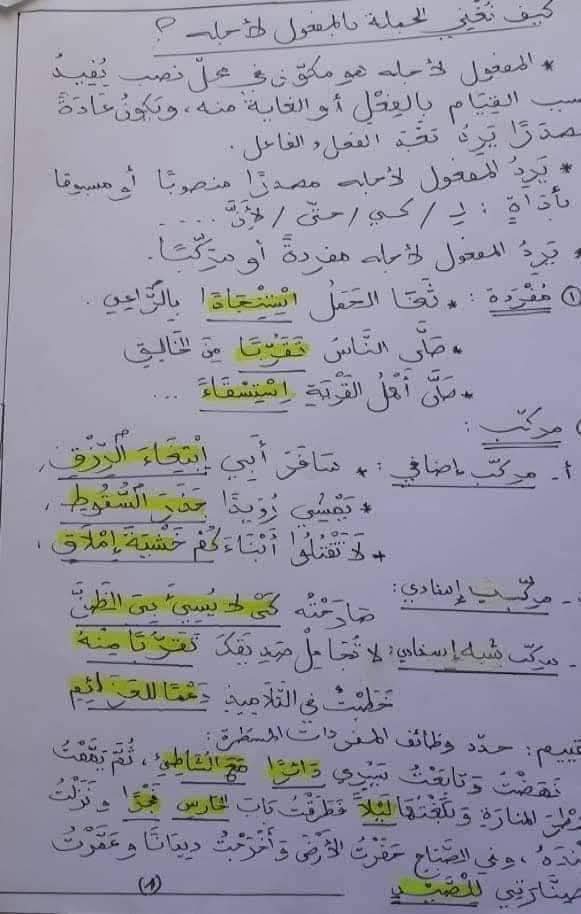 كيف نُغْني الجملة بالمفعول لأجله ؟
* المفعول لأجله هو مكوّن في محلّ نصب يُفِيدُ
سبب القِيَام بالفِعْلِ أو الغاية منه، ويكونُ عَادَةً
مصدرًا يَرِدُ بَعْدَ الفعل والفاعل.
* يَرِدُ المفعول لأجله مصدرًا منصوبًا أو مسبوقا
بأدَاةٍ : لِـ / كَيْ / حتّى / لأنَّ ....
* يَرِدُ المفعول لأجله مفردةً أو مركّبًا.
١) مُفْرَدَة : * ثَغَا الحَمَلُ اسْتِنْجَادًا بِالرَّاعِي .
* صَلَّى النَّاسُ تَقَرُّبًا مِنَ الخَالِقِ
* صَلَّى أَهْلُ القَرْيَةِ اِسْتِسْقَاءً ...
مركّب :
أ- مركّب إضافي : * سَافَرَ أَبِي اِبْتِغَاءَ الرِّزْقِ .
* يَمْشِي رُوَيْدًا حَذَرَ السُّقُوطِ .
* لَا تَقْتُلُوا أَبْنَاءَكُمْ خَشْيَةَ إِمْلَاقٍ .
- مركّب إسنادي : صَارَحْتُه كَيْ لا يُسِيءَ بِيَ الظَّنَّ
- مركّب شبه إسنادي : لا تُجَامِلْ صَدِيقَكَ تَقَرُّبًا مِنْهُ
خَطَبْتُ في التَّلَامِيذِ دَعْمًا للعَزَائِمِ
تقييم : حدّد وظائف المفردات المسطّرة :
نَهَضْتُ وَتَابَعْتُ سَيْرِي دَائِرًا مَعَ الشَّاطِئِ، ثُمَّ يَمَّمْتُ
المنارَةِ وَبَلَغْتُهَا لَيْلًا فَطَرَقْتُ بَابَ الحَارِسِ فَجْرًا وَنَزَلْتُ
عِنْدَهُ ، وَفِي الصَّبَاحِ حَفَرْتُ الأَرْضَ وَأَخْرَجْتُ دِيدَانًا وعَمَّرْتُ
صِنَّارَتِي لِلصَّيْدِ
(٨)